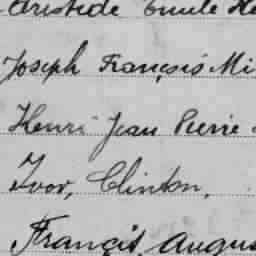 Aristide Emile He
Joseph François Mi
Henri Jean Pierre
Ivor, Clinton,
Francis Augus